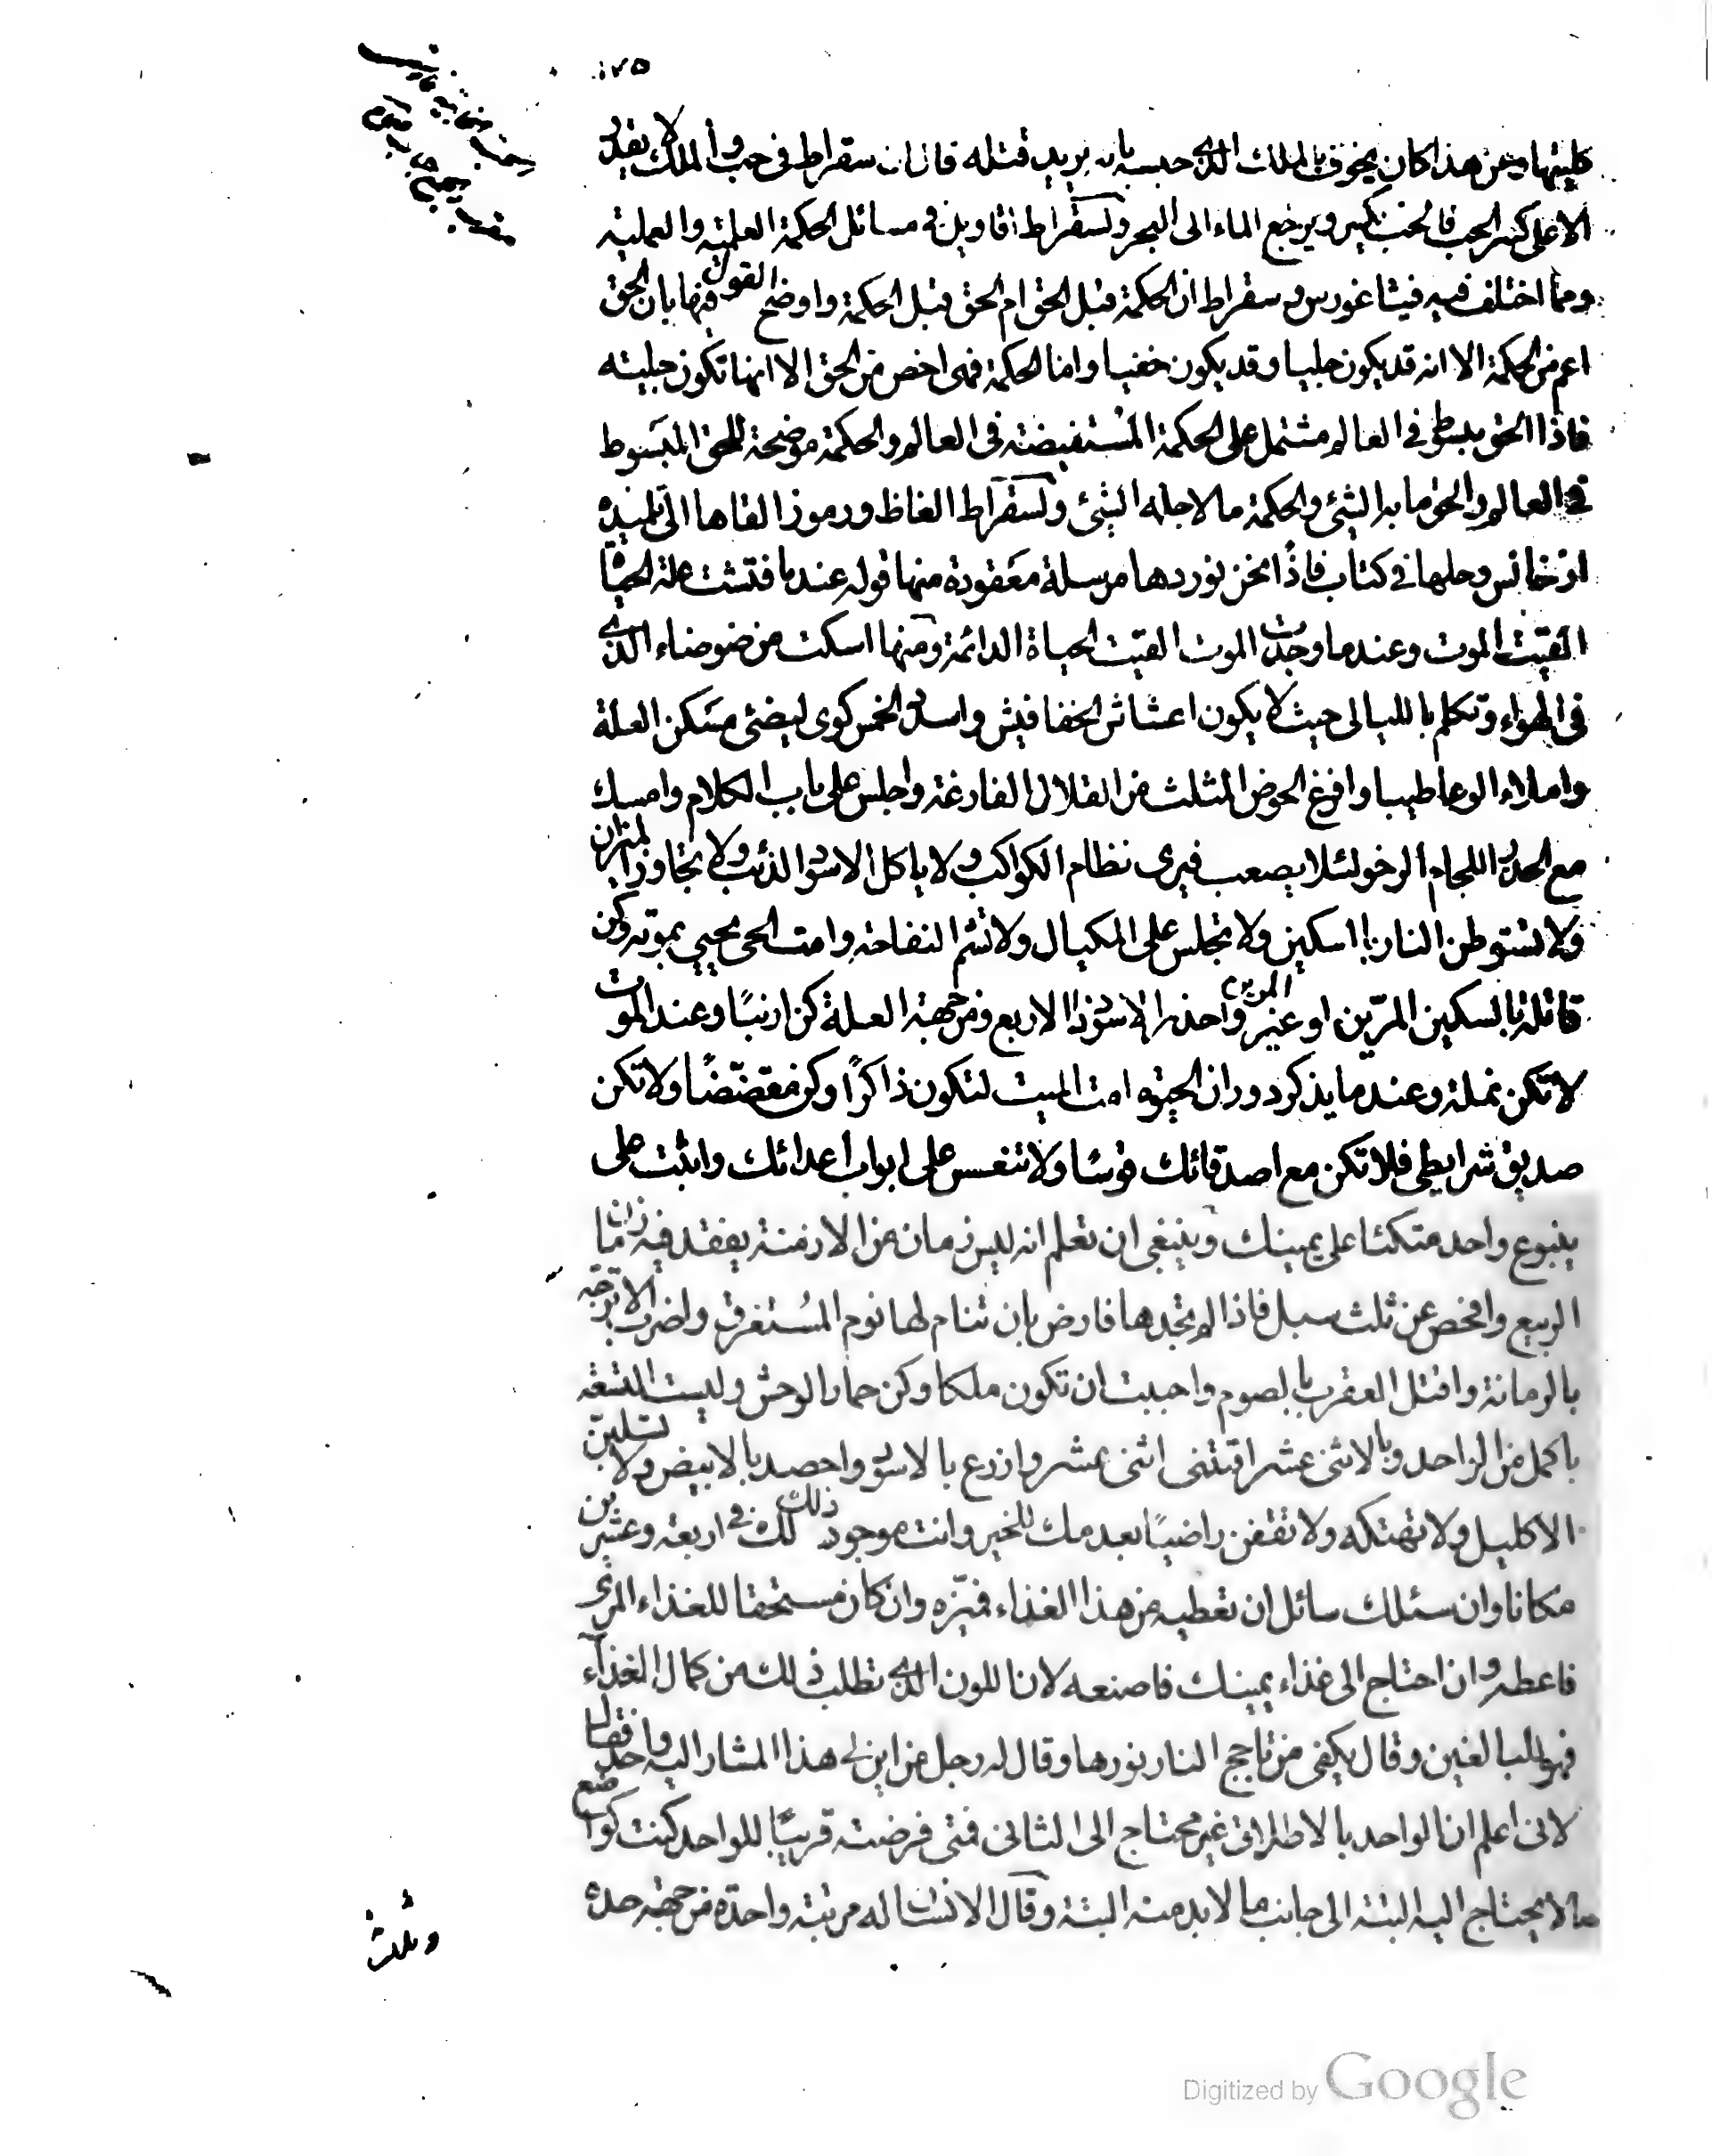 ١٧٥
كليتها وعن هذا كان يخوف بالملك الذى حبسه بانه يريد قتله قال ان سقراط فى حب والملك لا يقدر
الا على كسر الحب فالحب يكسر ويرجع الماء الى البحر ولسقراط اقاويل فى مسائل الحكمة العلمية والعملية
ومما اختلف فيه فيثاغورس وسقراط ان الحكمة قبل الحق ام الحق قبل الحكمة واوضح القول فيها بان الحق
اعم من الحكمة الا انه قد يكون جليا وقد يكون خفيا واما الحكمة فهى اخص من الحق الا انها تكون جليته
فاذا الحق مبسوط فى العالم مشتمل على الحكمة المستفيضة فى العالم والحكمة موضحة للحق المبسوط
فى العالم والحق ما به الشئ والحكمة ما لاجله الشئ ولسقراط الغاظ ورموز القاها الى تلميذه
ارخانس وحلها فى كتاب فاذن نحن نوردها مرسلة معقودة منها قوله عند ما فتشت علة الحياة
القيت الموت وعند ما وجدت الموت القيت الحياة الدائمة ومنها اسكت من ضوضاء الذى
فى الهواء وتكلم بالليالى حيث لا يكون اعشاش الخفافيش واسد الخمس كوى ليضئ مسكن العلة
واملاء الوعا طيبا وافرغ الحوض المثلث من القلال الفارغة واجلس على باب الكلام وامسك
مع الحذر اللجام الرخو لئلا يصعب فيرى نظام الكواكب ولا ياكل الاسود الذئب ولا تجاوز الميزان
ولا تستوطن النار بالسكين ولا تجلس على المكيال ولا تشم التفاحة وامت الحى يحيى بموته وكن
قاتله بالسكين المزين او غير المزين واحذر الاسود ذا الاربع ومن جهة العلة كن ارنبا وعند الموت
لا تكن نملة وعند ما يذكر دوران الحيوة امت الميت لتكون ذاكرا وكن مقضضا ولا تكن
صديق شرايطى فلا تكن مع اصدقائك قوسا ولا تنعس على ابواب اعدائك واثبت على
ينبوع واحد متكئا على يمينك وينبغى ان تعلم انه ليس زمان من الازمنة يفقد فيه زمان
الربيع وافحص عن ثلث سبل فاذا لم تجدها فارض بان تنام لها نوم المستغرق واضرب الاترجة
بالرمانة واقتل العقرب بالصوم واحببت ان تكون ملكا وكن حمار الوحش وليست التسعة
باكمل من الواحد وبالاثنى عشر اقتنى اثنى عشر وازرع بالاسود واحصد بالابيض ولا تسلبن
الاكليل ولا تهتكه ولا تقفن راضيا بعدمك للخير وانت موجود ذلك لك فى اربعة وعشرين
مكانا وان سئلك سائل ان تعطيه من هذا الغذاء فميزه وان كان مستحقا للغذاء المرئ
فاعطه وان احتاج الى غذاء يمينك فاصنعه لان اللون الذى تطلب ذلك من كمال الغذاء
فهو للبالغين وقال يكفى من تاجج النار نورها وقال له رجل من اين لى هذا المشار اليه واحد فقال
لانى اعلم ان الواحد بالاطلاق غير محتاج الى الثانى فمتى فرضته قريبا للواحد كنت كواضع
ما لا يحتاج اليه البتة الى جانب ما لا بد منه البتة وقال الانسان له مرتبة واحدة من جهة حده
Digitized by Google